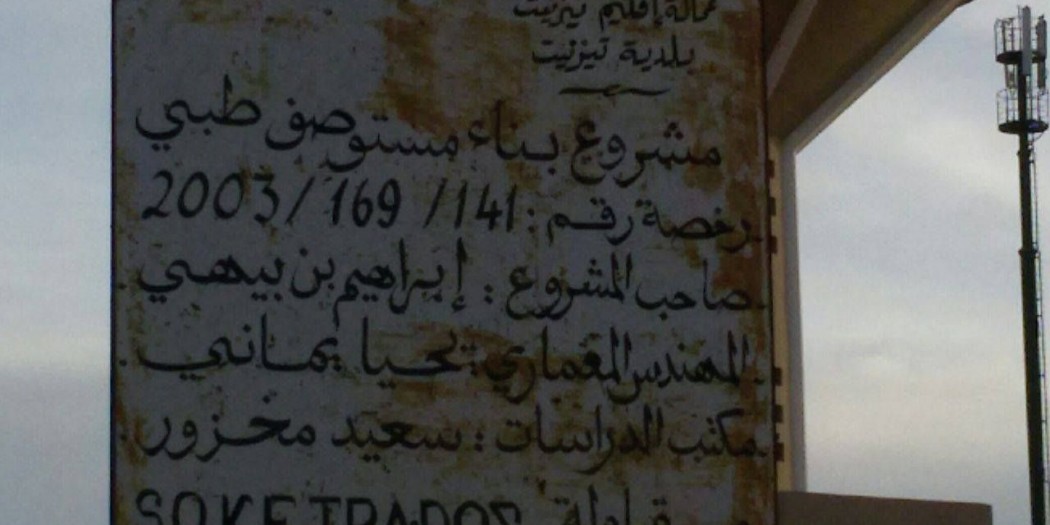 عمالة إقليم تيزنيت
بلدية تيزنيت
مشروع بناء مستوصف طبي
رخصة رقم : 141/ 169 /2003
صاحب المشروع : إبراهيم بن بيهي
المهندس المعماري : يحيا يماني
مكتب الدراسات : سعيد مخزور
مقاولة SOKETRADOS